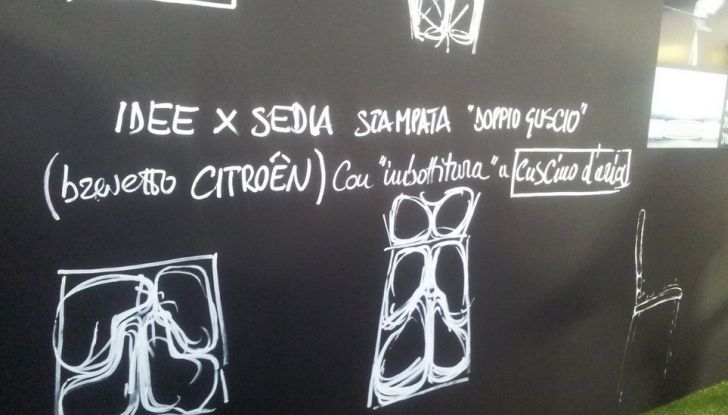 IDEE X SEDIA STAMPATA "DOPPIO GUSCIO"
(brevetto CITROËN) Con "imbottitura" a cuscino d'aria